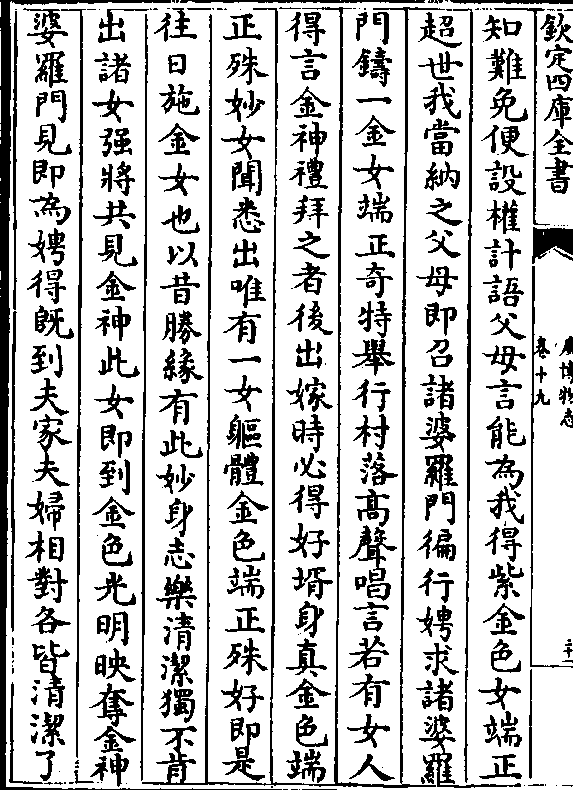 欽定四庫全書
廣博物志
卷十九
知難免便設權計語父母言能為我得紫金色女端正
超世我當納之父母即召諸婆羅門徧行娉求諸婆羅
門鑄一金女端正奇特舉行村落高聲唱言若有女人
得言金神禮拜之者後出嫁時必得好壻身真金色端
正殊妙女聞悉出唯有一女軀體金色端正殊好即是
往日施金女也以昔勝緣有此妙身志樂清潔獨不肯
出諸女强將共見金神此女即到金色光明映奪金神
婆羅門見即為娉得既到夫家夫婦相對各皆清潔了